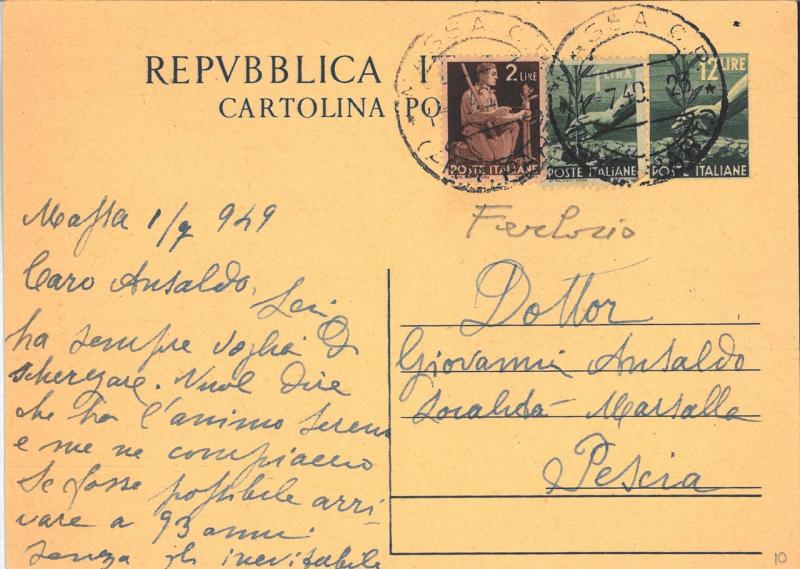 REPVBBLICA I
CARTOLINA PO
MASSA C.P.
2 LIRE
POSTE ITALIANE
MASSA C.P.
1 LIRA
7.49. 23
POSTE ITALIANE
12 LIRE
POSTE ITALIANE
Massa 1/7 949
Caro Ansaldo, Lei
ha sempre voglia di
scherzare. Vuol dire
che ha l'animo sereno
e me ne compiaccio
Se fosse possibile arri-
vare a 93 anni
senza gli inevitabile
Dottor
Giovanni Ansaldo
Località Marsalla
Pescia
10